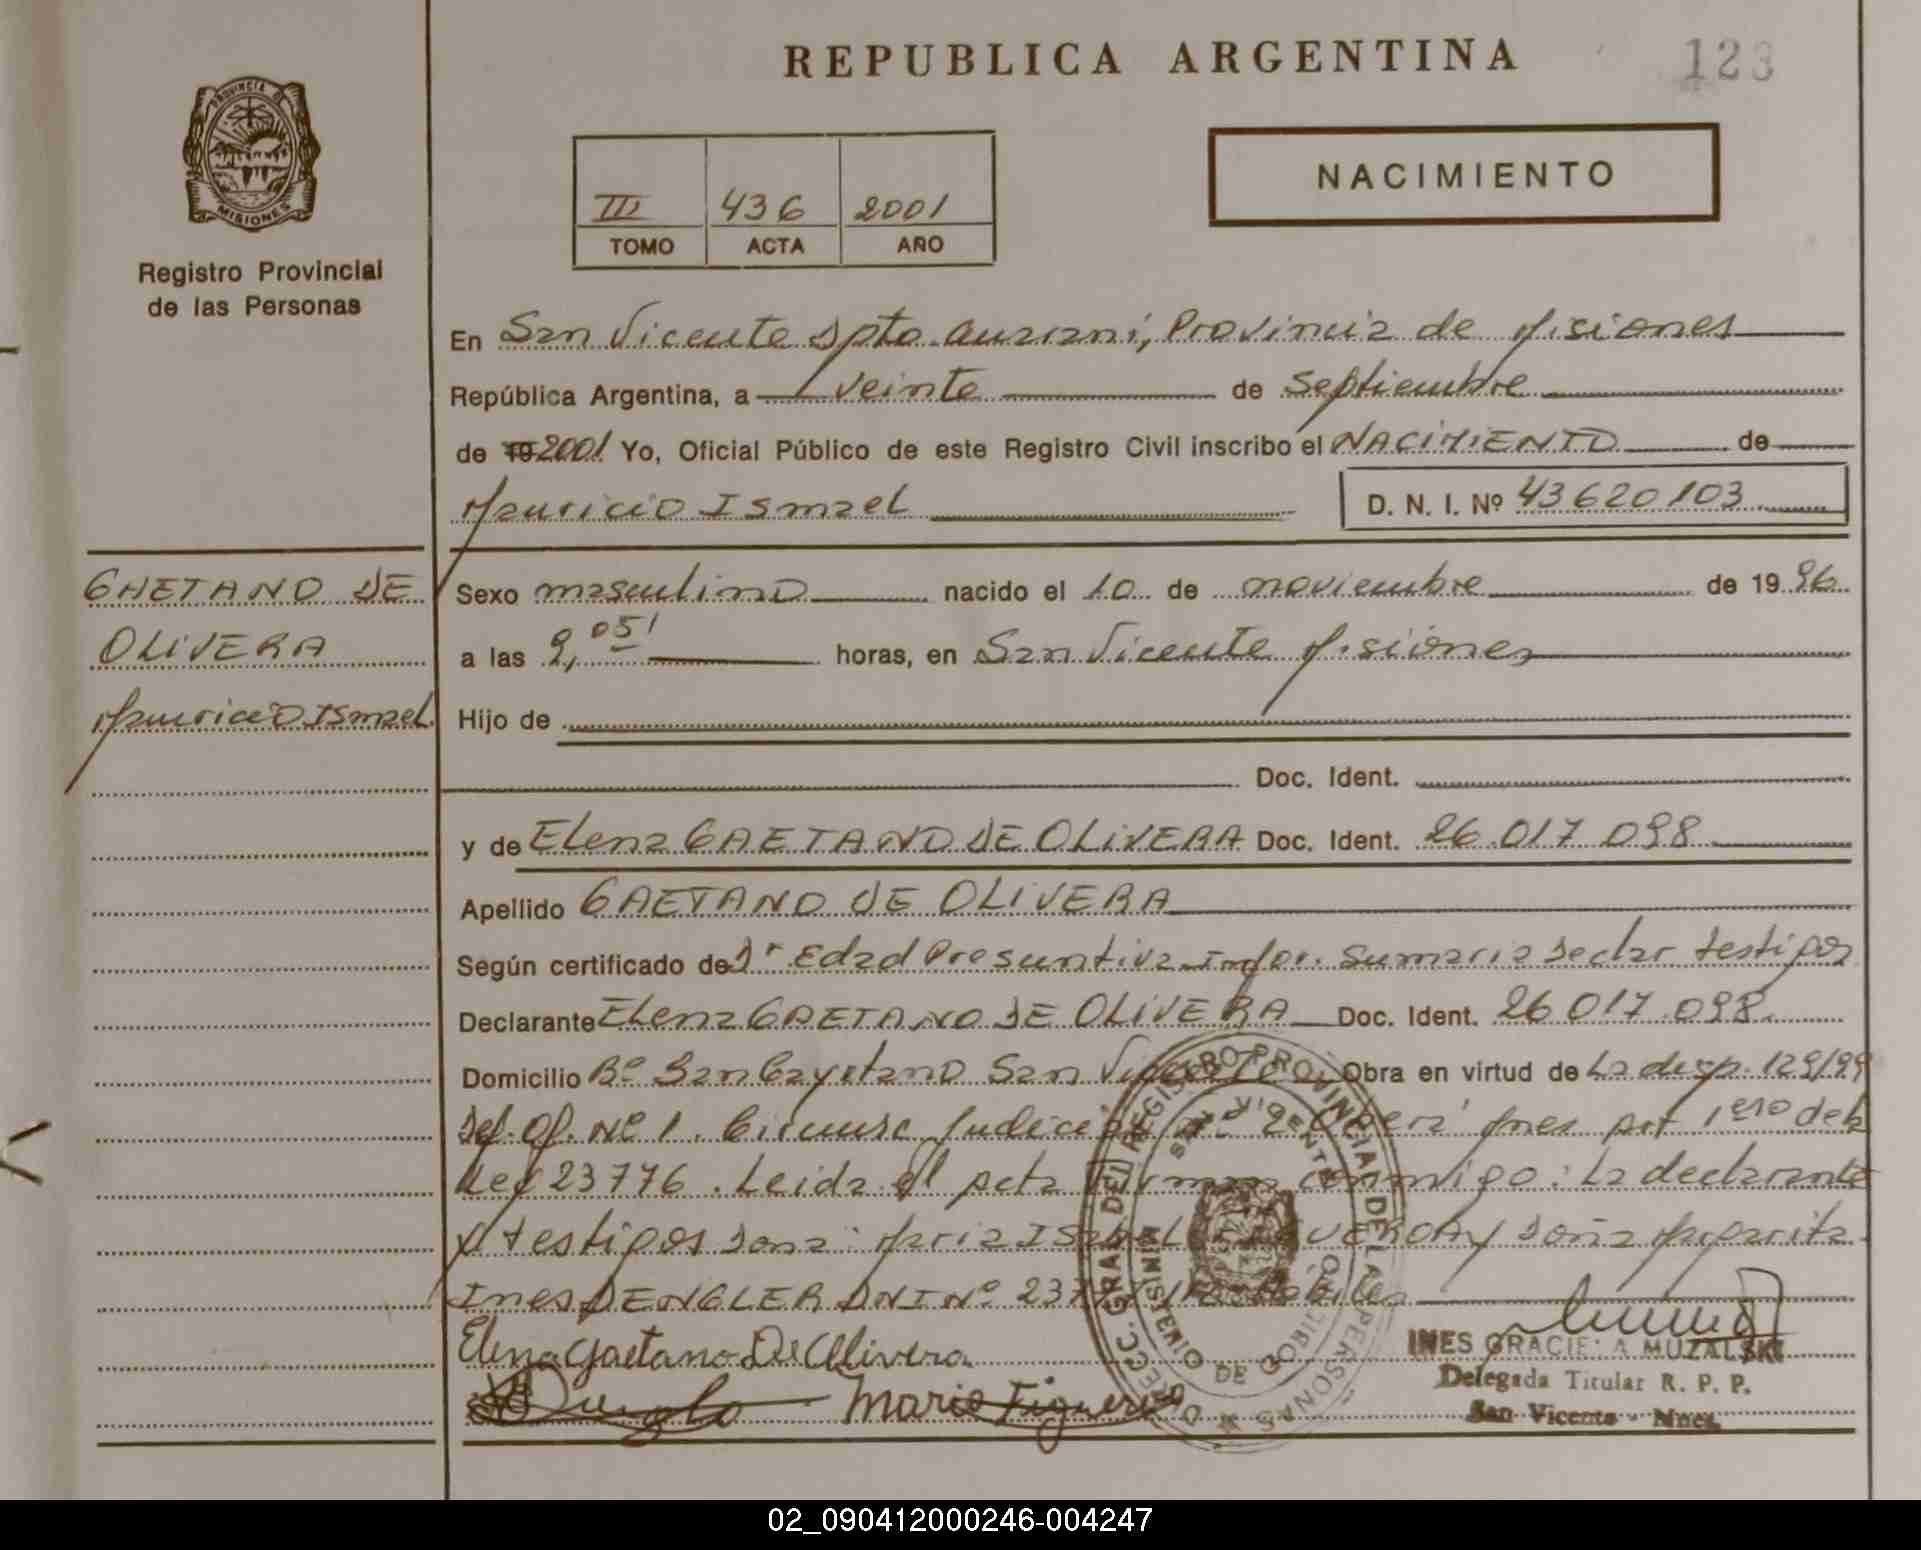 REPUBLICA ARGENTINA
123
PROVINCIA DE
MISIONES
Registro Provincial
de las Personas
III 436 2001
TOMO ACTA AÑO
NACIMIENTO
En San Vicente Dpto. Guarani, Provincia de Misiones
República Argentina, a veinte de Septiembre
de 19 2001 Yo, Oficial Público de este Registro Civil inscribo el NACIMIENTO de
Mauricio Ismael D. N. I. Nº 43620103
GAETANO DE
OLIVERA
Mauricio Ismael
Sexo masculino nacido el 10 de noviembre de 19 96
a las 9,05' horas, en San Vicente Misiones
Hijo de
Doc. Ident.
y de Elena GAETANO DE OLIVERA Doc. Ident. 26.017.098
Apellido GAETANO DE OLIVERA
Según certificado de Dr Edad Presuntiva Infor. Sumaria Declar testigos
Declarante Elena GAETANO DE OLIVERA Doc. Ident. 26.017.098
Domicilio Bº San Cayetano San Vicente Obra en virtud de La disp. 129/99
Def. Of. Nº 1. Circunsc Judicial Nº 2 Oberá Mnes Art 1ero de la
Ley 23776. Leida el acta firman conmigo: La declarante
y testigos Doña: Maria Isabel FIGUEROA y Doña Margarita
Ines DENGLER DNI Nº Hábiles
Elena Gaetano De Olivera
Maria Figueroa
DIRECC. GRAL DEL REGISTRO PROVINCIAL DE LAS PERSONAS
SAN VICENTE
MISIONES
INES GRACIELA MUZALSKI
Delegada Titular R. P. P.
San Vicente - Mnes.
02_090412000246-004247